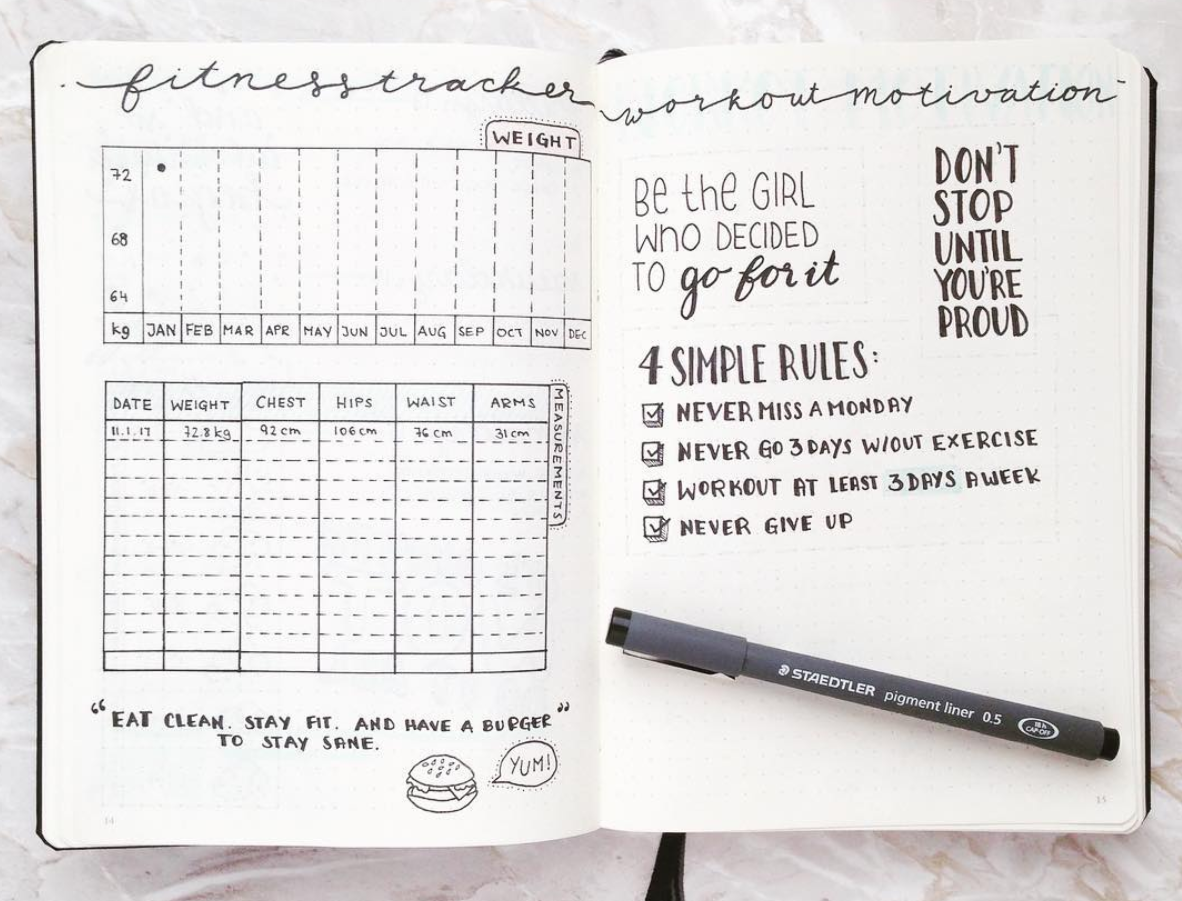 fitnesstracker
WEIGHT
72
68
64
kg JAN FEB MAR APR MAY JUN JUL AUG SEP OCT NOV DEC
DATE WEIGHT CHEST HIPS WAIST ARMS
11.1.17 72.8kg 92cm 106cm 76cm 31cm
MEASUREMENTS
“EAT CLEAN. STAY FIT. AND HAVE A BURGER”
TO STAY SANE.
YUM!
14
workout motivation
Be the GIRL
who DECIDED
TO go for it
DON'T
STOP
UNTIL
YOU'RE
PROUD
4 SIMPLE RULES:
NEVER MISS A MONDAY
NEVER GO 3 DAYS W/OUT EXERCISE
WORKOUT AT LEAST 3 DAYS A WEEK
NEVER GIVE UP
STAEDTLER pigment liner 0.5
18 h
CAP-OFF
15